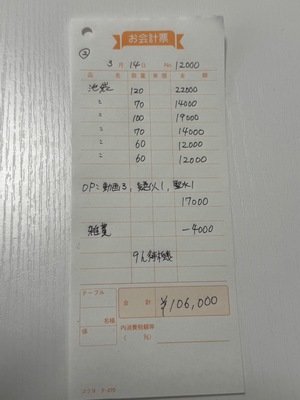 お会計票
②
3月14日 No. 12000
品名 数量 単価 金額
池袋 120 22000
〃 70 14000
〃 100 19000
〃 70 14000
〃 60 12000
〃 60 12000
OP: 動画3, 聖水1
17000
雑費 -4000
テーブル
名様
係
合計 ¥106,000
内消費税額等
( %)